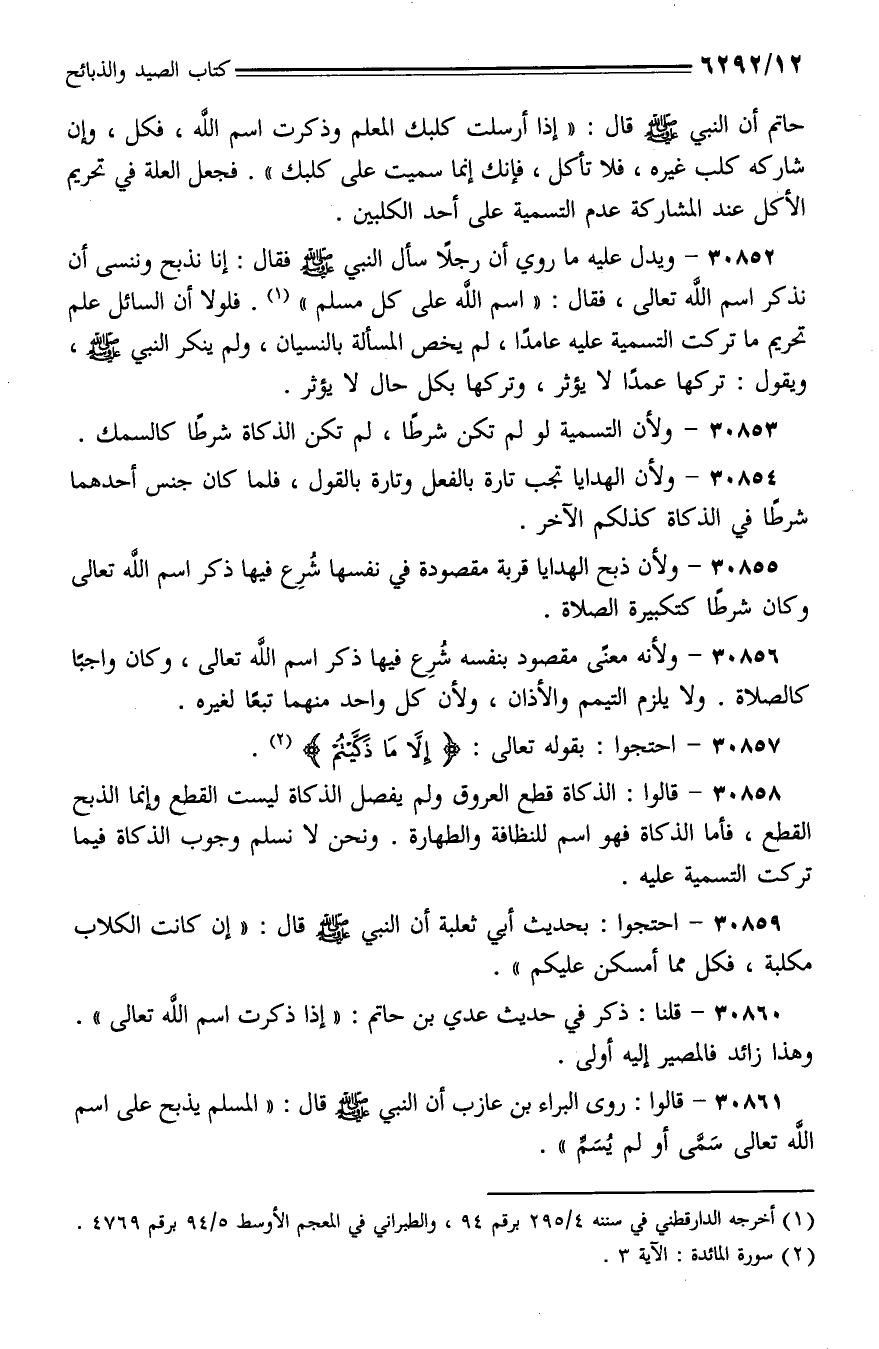 ٦٢٩٢/١٢ كتاب الصيد والذبائح
حاتم أن النبي ﷺ قال : « إذا أرسلت كلبك المعلم وذكرت اسم اللَّه ، فكل ، وإن
شاركه كلب غيره ، فلا تأكل ، فإنك إنما سميت على كلبك » . فجعل العلة في تحريم
الأكل عند المشاركة عدم التسمية على أحد الكلبين .
٣٠٨٥٢ - ويدل عليه ما روي أن رجلًا سأل النبي ﷺ فقال : إنا نذبح وننسى أن
نذكر اسم اللَّه تعالى ، فقال : « اسم اللَّه على كل مسلم » (١) . فلولا أن السائل علم
تحريم ما تركت التسمية عليه عامدًا ، لم يخص المسألة بالنسيان ، ولم ينكر النبي ﷺ ،
ويقول : تركها عمدًا لا يؤثر ، وتركها بكل حال لا يؤثر .
٣٠٨٥٣ - ولأن التسمية لو لم تكن شرطًا ، لم تكن الذكاة شرطًا كالسمك .
٣٠٨٥٤ - ولأن الهدايا تجب تارة بالفعل وتارة بالقول ، فلما كان جنس أحدهما
شرطًا في الذكاة كذلكم الآخر .
٣٠٨٥٥ - ولأن ذبح الهدايا قربة مقصودة في نفسها شُرِع فيها ذكر اسم اللَّه تعالى
وكان شرطًا كتكبيرة الصلاة .
٣٠٨٥٦ - ولأنه معنًى مقصود بنفسه شُرِع فيها ذكر اسم اللَّه تعالى ، وكان واجبًا
كالصلاة . ولا يلزم التيمم والأذان ، ولأن كل واحد منهما تبعًا لغيره .
٣٠٨٥٧ - احتجوا : بقوله تعالى : ﴿ إِلَّا مَا ذَكَّيْتُمْ ﴾ (٢) .
٣٠٨٥٨ - قالوا : الذكاة قطع العروق ولم يفصل الذكاة ليست القطع وإنما الذبح
القطع ، فأما الذكاة فهو اسم للنظافة والطهارة . ونحن لا نسلم وجوب الذكاة فيما
تركت التسمية عليه .
٣٠٨٥٩ - احتجوا : بحديث أبي ثعلبة أن النبي ﷺ قال : « إن كانت الكلاب
مكلبة ، فكل مما أمسكن عليكم » .
٣٠٨٦٠ - قلنا : ذكر في حديث عدي بن حاتم : « إذا ذكرت اسم اللَّه تعالى » .
وهذا زائد فالمصير إليه أولى .
٣٠٨٦١ - قالوا : روى البراء بن عازب أن النبي ﷺ قال : « المسلم يذبح على اسم
اللَّه تعالى سَمَّى أو لم يُسَمِّ » .
(١) أخرجه الدارقطني في سننه ٢٩٥/٤ برقم ٩٤ ، والطبراني في المعجم الأوسط ٩٤/٥ برقم ٤٧٦٩ .
(٢) سورة المائدة : الآية ٣ .